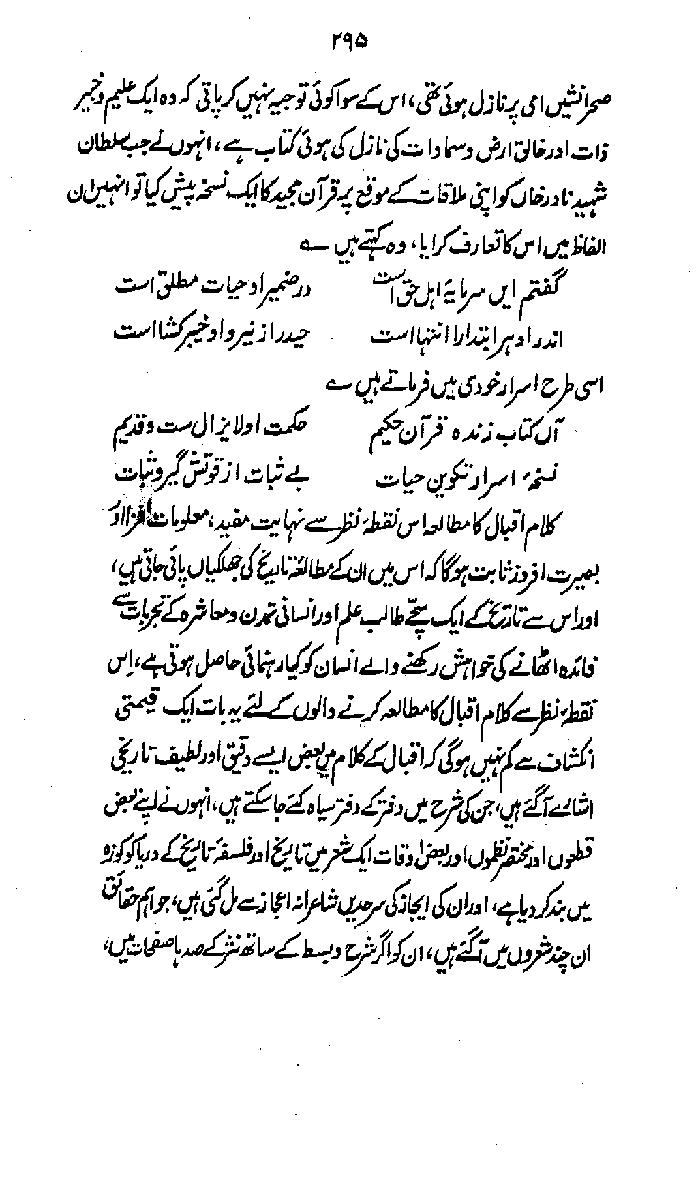 ۲۹۵
صحرانشیں امی پر نازل ہوئی تھی، اس کے سوا کوئی توجیہ نہیں کر پاتی کہ وہ ایک علیم و خبیر
ذات اور خالق ارض و سماوات کی نازل کی ہوئی کتاب ہے، انہوں نے جب سلطان
شہید نادر خاں کو اپنی ملاقات کے موقع پر قرآن مجید کا ایک نسخہ پیش کیا تو انہیں ان
الفاظ میں اس کا تعارف کرایا، وہ کہتے ہیں ؎
گفتم ایں سرمایۂ اہل حق است در ضمیر او حیات مطلق است
اندر او ہر ابتدا را انتہا است حیدر از نیرو او خیبر کشا است
اسی طرح اسرار خودی میں فرماتے ہیں ؎
آں کتاب زندہ قرآن حکیم حکمت او لایزال ست و قدیم
نسخۂ اسرار تکوین حیات بے ثبات از قوتش گیرد ثبات
کلام اقبال کا مطالعہ اس نقطۂ نظر سے نہایت مفید، معلومات افزا اور
بصیرت افروز ثابت ہوگا کہ اس میں ان کے مطالعۂ تاریخ کی جھلکیاں پائی جاتی ہیں،
اور اس سے تاریخ کے ایک سچے طالب علم اور انسانی تمدن و معاشرہ کے تجربات سے
فائدہ اٹھانے کی خواہش رکھنے والے انسان کو کیا رہنمائی حاصل ہوتی ہے، اِس
نقطۂ نظر سے کلام اقبال کا مطالعہ کرنے والوں کے لئے یہ بات ایک قیمتی
انکشاف سے کم نہیں ہوگی کہ اقبال کے کلام میں بعض ایسے دقیق اور لطیف تاریخی
اشارے آگئے ہیں، جن کی شرح میں دفتر کے دفتر سیاہ کئے جا سکتے ہیں، انہوں نے اپنے بعض
قطعوں اور مختصر نظموں اور بعض اوقات ایک شعر میں تاریخ اور فلسفۂ تاریخ کے دریا کو کوزہ
میں بند کر دیا ہے، اور ان کی ایجاز کی سرحدیں شاعرانہ اعجاز سے مل گئی ہیں، جو اہم حقائق
ان چند شعروں میں آگئے ہیں، ان کو اگر شرح و بسط کے ساتھ نثر کے صدہا صفحات میں،